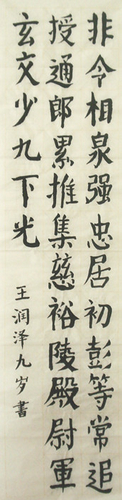 非令相泉强忠居初彭等常追
授通郎累推集慈裕陵殿尉軍
玄文少九下光
王润泽九岁書